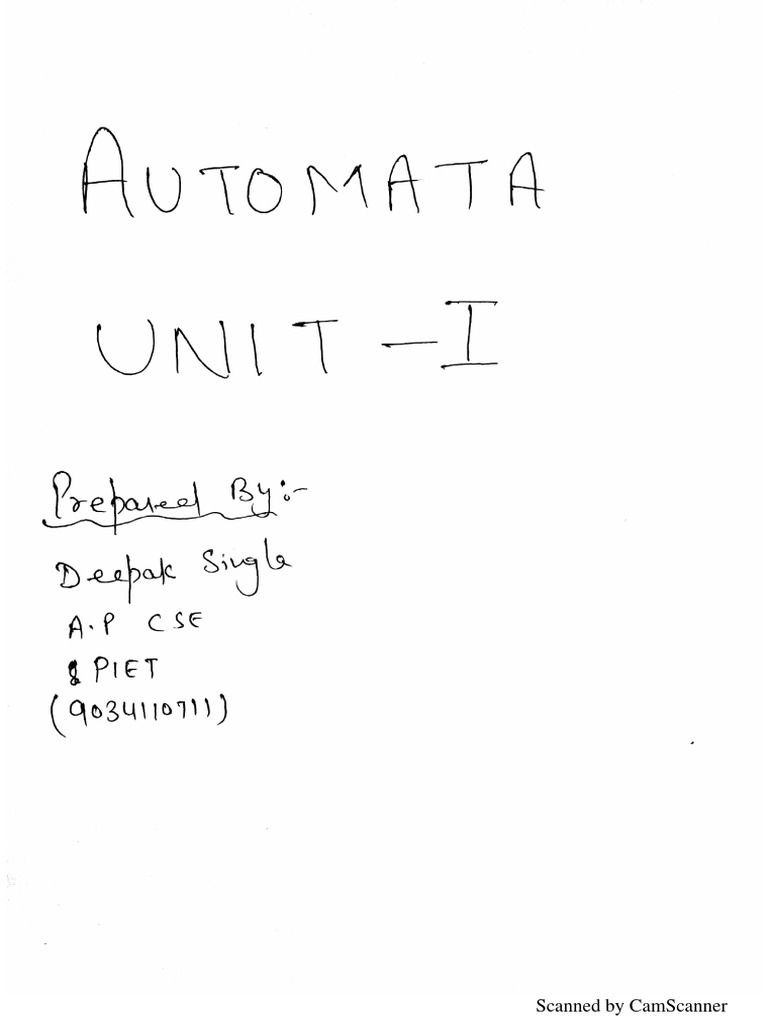 AUTOMATA
UNIT - I
Prepared By:-
Deepak Singla
A.P CSE
PIET
(9034110711)
Scanned by CamScanner